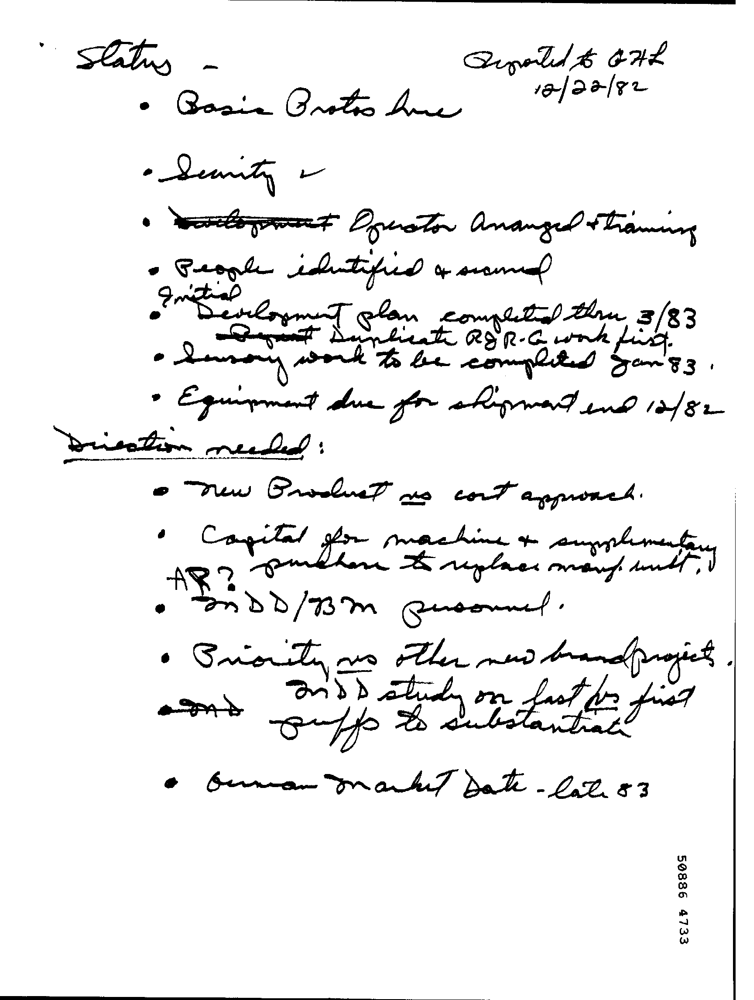 Status -
Reported to GHL
12/22/82
• Basic Protos here
• Security ✓
• Development Operator Arranged & training
• People identified & secured
Initial
• Development plan completed thru 3/83
Duplicate RJR-G work first.
• Sensory work to be completed Jan 83.
• Equipment due for shipment end 12/82
Direction needed:
• New Product vs cost approach.
• Capital for machine & supplementary
purchase to replace manf. unit.
AR?
• MDD/BM personnel.
• Priority vs other new brand projects.
MDD study on last vs first
• MD puffs to substantiate
• German Market Date - late 83
50886 4733